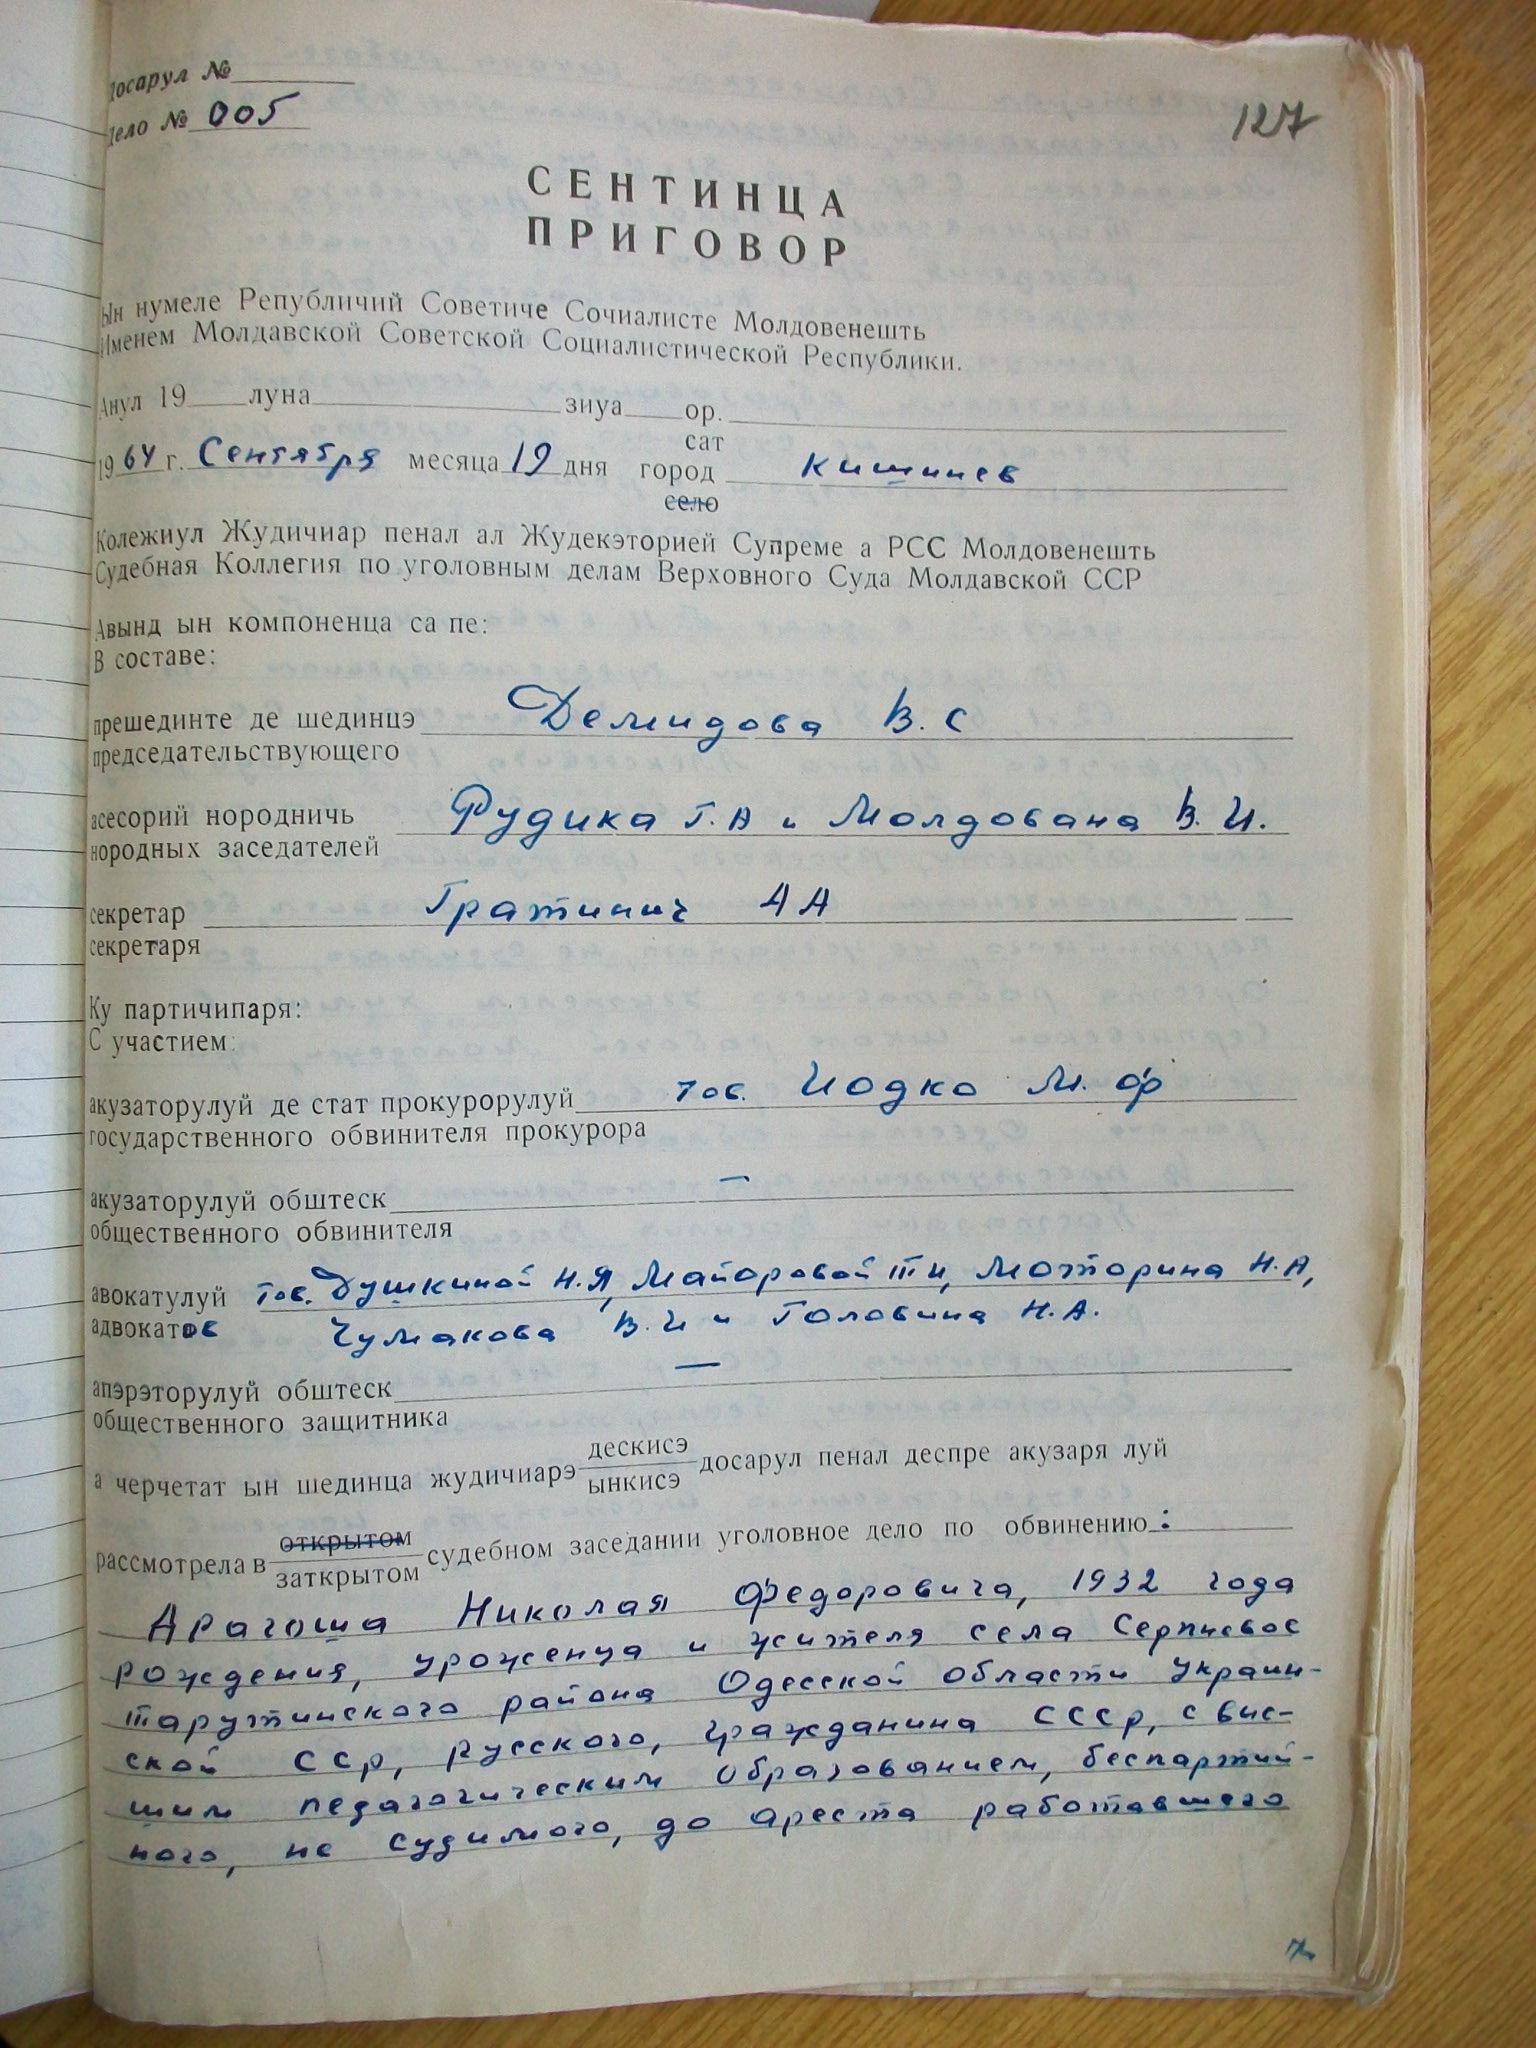 Досарул №
Дело № 005
127
СЕНТИНЦА
ПРИГОВОР
Ын нумеле Републичий Советиче Сочиалисте Молдовенешть
Именем Молдавской Советской Социалистической Республики.
Анул 19 луна зиуа ор.
сат
1964 г. Сентября месяца 19 дня город Кишинев
село
Колежиул Жудичиар пенал ал Жудекэторией Супреме а РСС Молдовенешть
Судебная Коллегия по уголовным делам Верховного Суда Молдавской ССР
Авынд ын компоненца са пе:
В составе:
прешединте де шединцэ Демидова В. С
председательствующего
асесорий нородничь Рудика Г. А и Молдована В. И.
нородных заседателей
секретар Гратинич А А
секретаря
Ку партичипаря:
С участием:
акузаторулуй де стат прокурорулуй тов. Иодко М. Ф
государственного обвинителя прокурора
акузаторулуй обштеск —
общественного обвинителя
авокатулуй тов. Душкиной Н.Я, Майоровой Т И, Моторина Н.А,
адвокатов Чумакова В. И и Головина Н. А.
апэрэторулуй обштеск —
общественного защитника
а черчетат ын шединца жудичиарэ дескисэ ынкисэ досарул пенал деспре акузаря луй
рассмотрела в открытом заткрытом судебном заседании уголовное дело по обвинению :
Драгоша Николая Федоровича, 1932 года
рождения, уроженца и жителя села Серпневое
Тарутинского района Одесской области Украин-
ской ССР, русского, гражданина СССР, с выс-
шим педагогическим образованием, беспартий-
ного, не судимого, до ареста работавшего